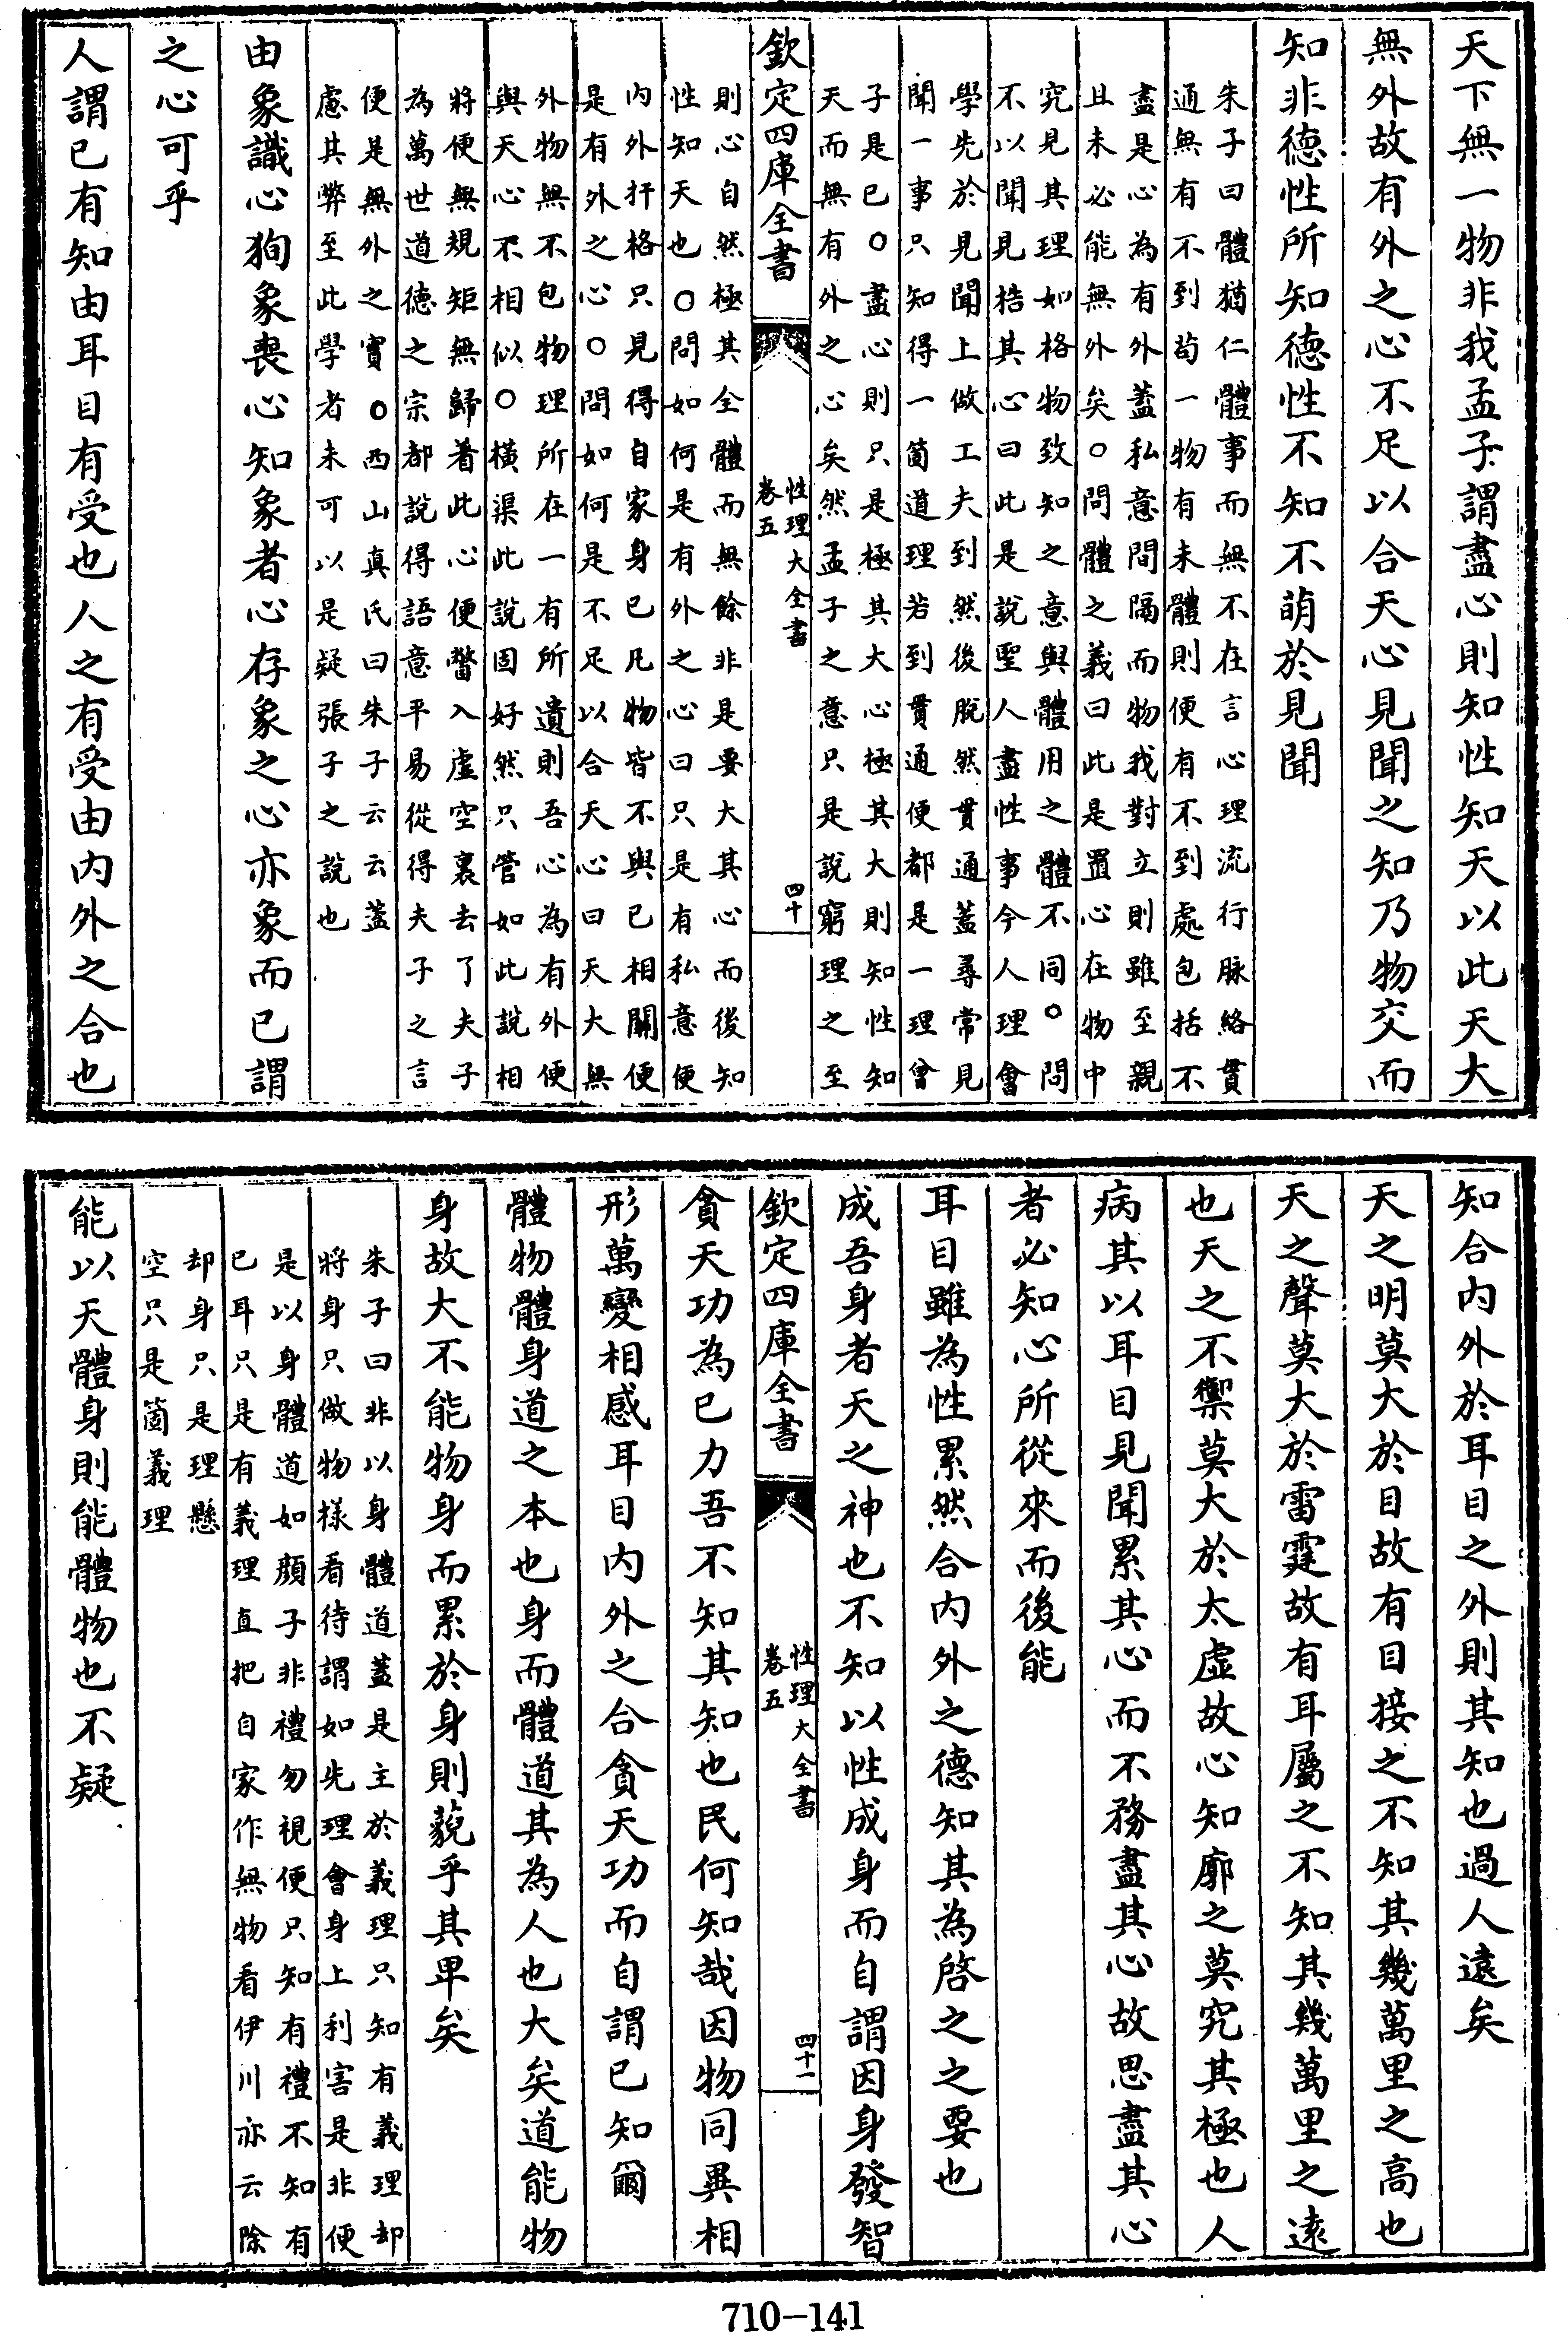 天下無一物非我孟子謂盡心則知性知天以此天大
無外故有外之心不足以合天心見聞之知乃物交而
知非德性所知德性不知不萌於見聞
朱子曰體猶仁體事而無不在言心理流行脉絡貫
通無有不到苟一物有未體則便有不到處包括不
盡是心為有外蓋私意間隔而物我對立則雖至親
且未必能無外矣○問體之義曰此是置心在物中
究見其理如格物致知之意與體用之體不同○問
不以聞見梏其心曰此是說聖人盡性事今人理會
學先於見聞上做工夫到然後脫然貫通蓋尋常見
聞一事只知得一箇道理若到貫通便都是一理曾
子是已○盡心則只是極其大心極其大則知性知
天而無有外之心矣然孟子之意只是說窮理之至
欽定四庫全書
性理大全書
卷五
四十
則心自然極其全體而無餘非是要大其心而後知
性知天也○問如何是有外之心曰只是有私意便
內外扞格只見得自家身已凡物皆不與已相關便
是有外之心○問如何是不足以合天心曰天大無
外物無不包物理所在一有所遺則吾心為有外便
與天心不相似○橫渠此說固好然只管如此說相
將便無規矩無歸着此心便瞥入虛空裏去了夫子
為萬世道德之宗都說得語意平易從得夫子之言
便是無外之實○西山真氏曰朱子云云蓋
慮其弊至此學者未可以是疑張子之說也
由象識心狥象喪心知象者心存象之心亦象而已謂
之心可乎
人謂已有知由耳目有受也人之有受由內外之合也
知合內外於耳目之外則其知也過人遠矣
天之明莫大於目故有目接之不知其幾萬里之高也
天之聲莫大於雷霆故有耳屬之不知其幾萬里之遠
也天之不禦莫大於太虛故心知廓之莫究其極也人
病其以耳目見聞累其心而不務盡其心故思盡其心
者必知心所從來而後能
耳目雖為性累然合內外之德知其為啓之之要也
成吾身者天之神也不知以性成身而自謂因身發智
欽定四庫全書
性理大全書
卷五
四十一
貪天功為已力吾不知其知也民何知哉因物同異相
形萬變相感耳目內外之合貪天功而自謂已知爾
體物體身道之本也身而體道其為人也大矣道能物
身故大不能物身而累於身則藐乎其卑矣
朱子曰非以身體道蓋是主於義理只知有義理却
將身只做物樣看待謂如先理會身上利害是非便
是以身體道如顏子非禮勿視便只知有禮不知有
已耳只是有義理直把自家作無物看伊川亦云除
却身只是理懸
空只是箇義理
能以天體身則能體物也不疑
710-141